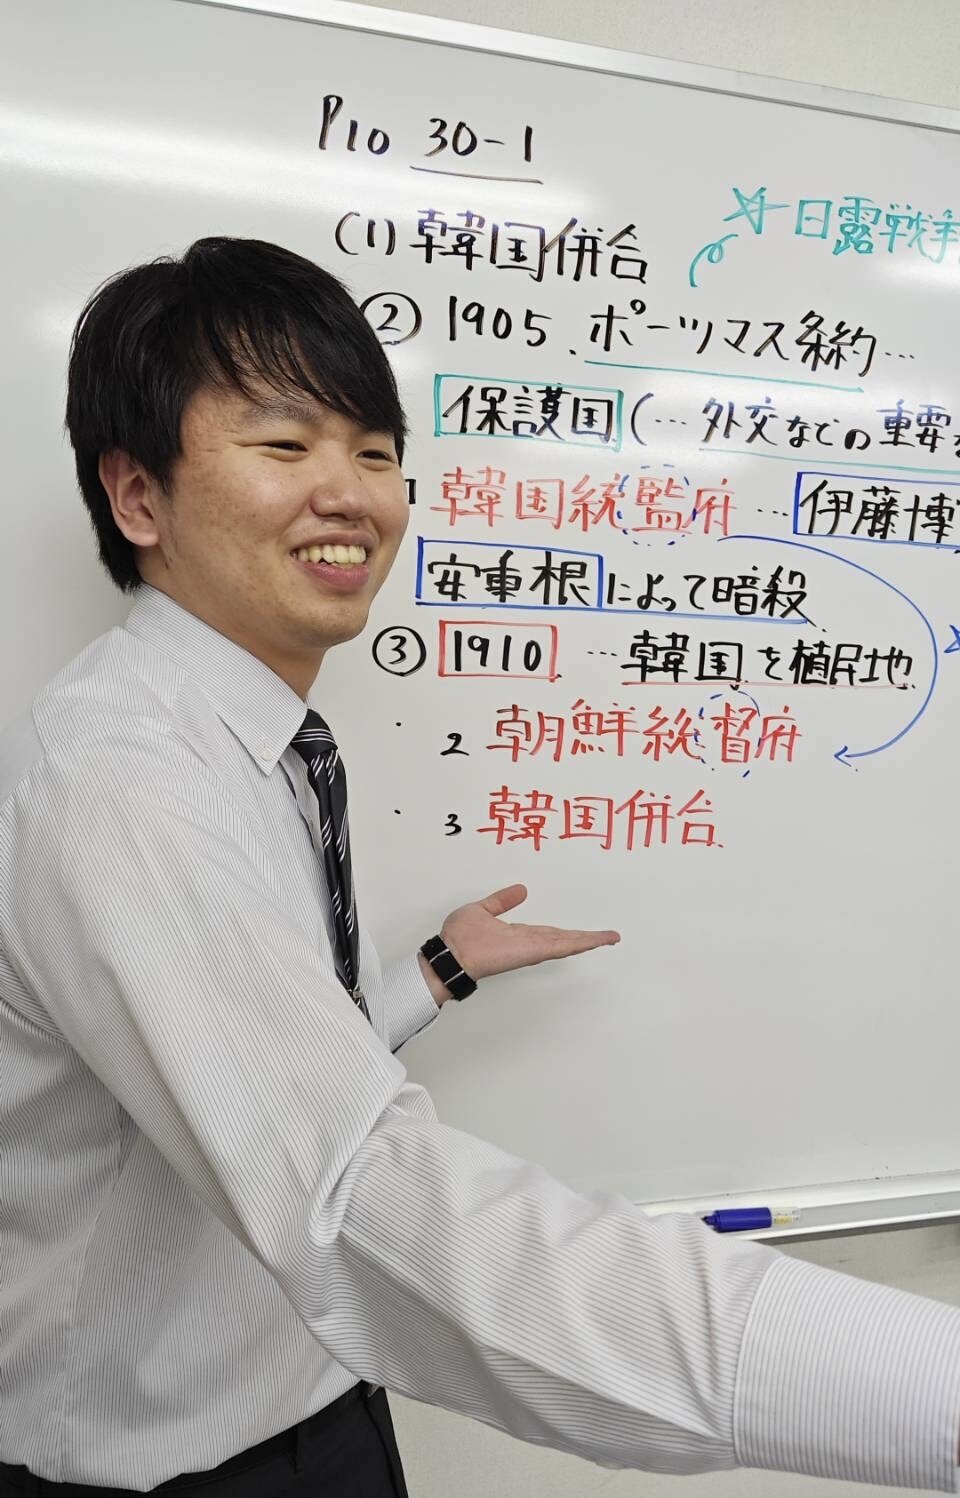 P10 30-1
(1) 韓国併合
☆ 日露戦争
② 1905、ポーツマス条約…
保護国 (… 外交などの重要な
1 韓国統監府 … 伊藤博
安重根 によって暗殺
③ 1910 … 韓国を植民地
・ 2 朝鮮総督府
・ 3 韓国併合